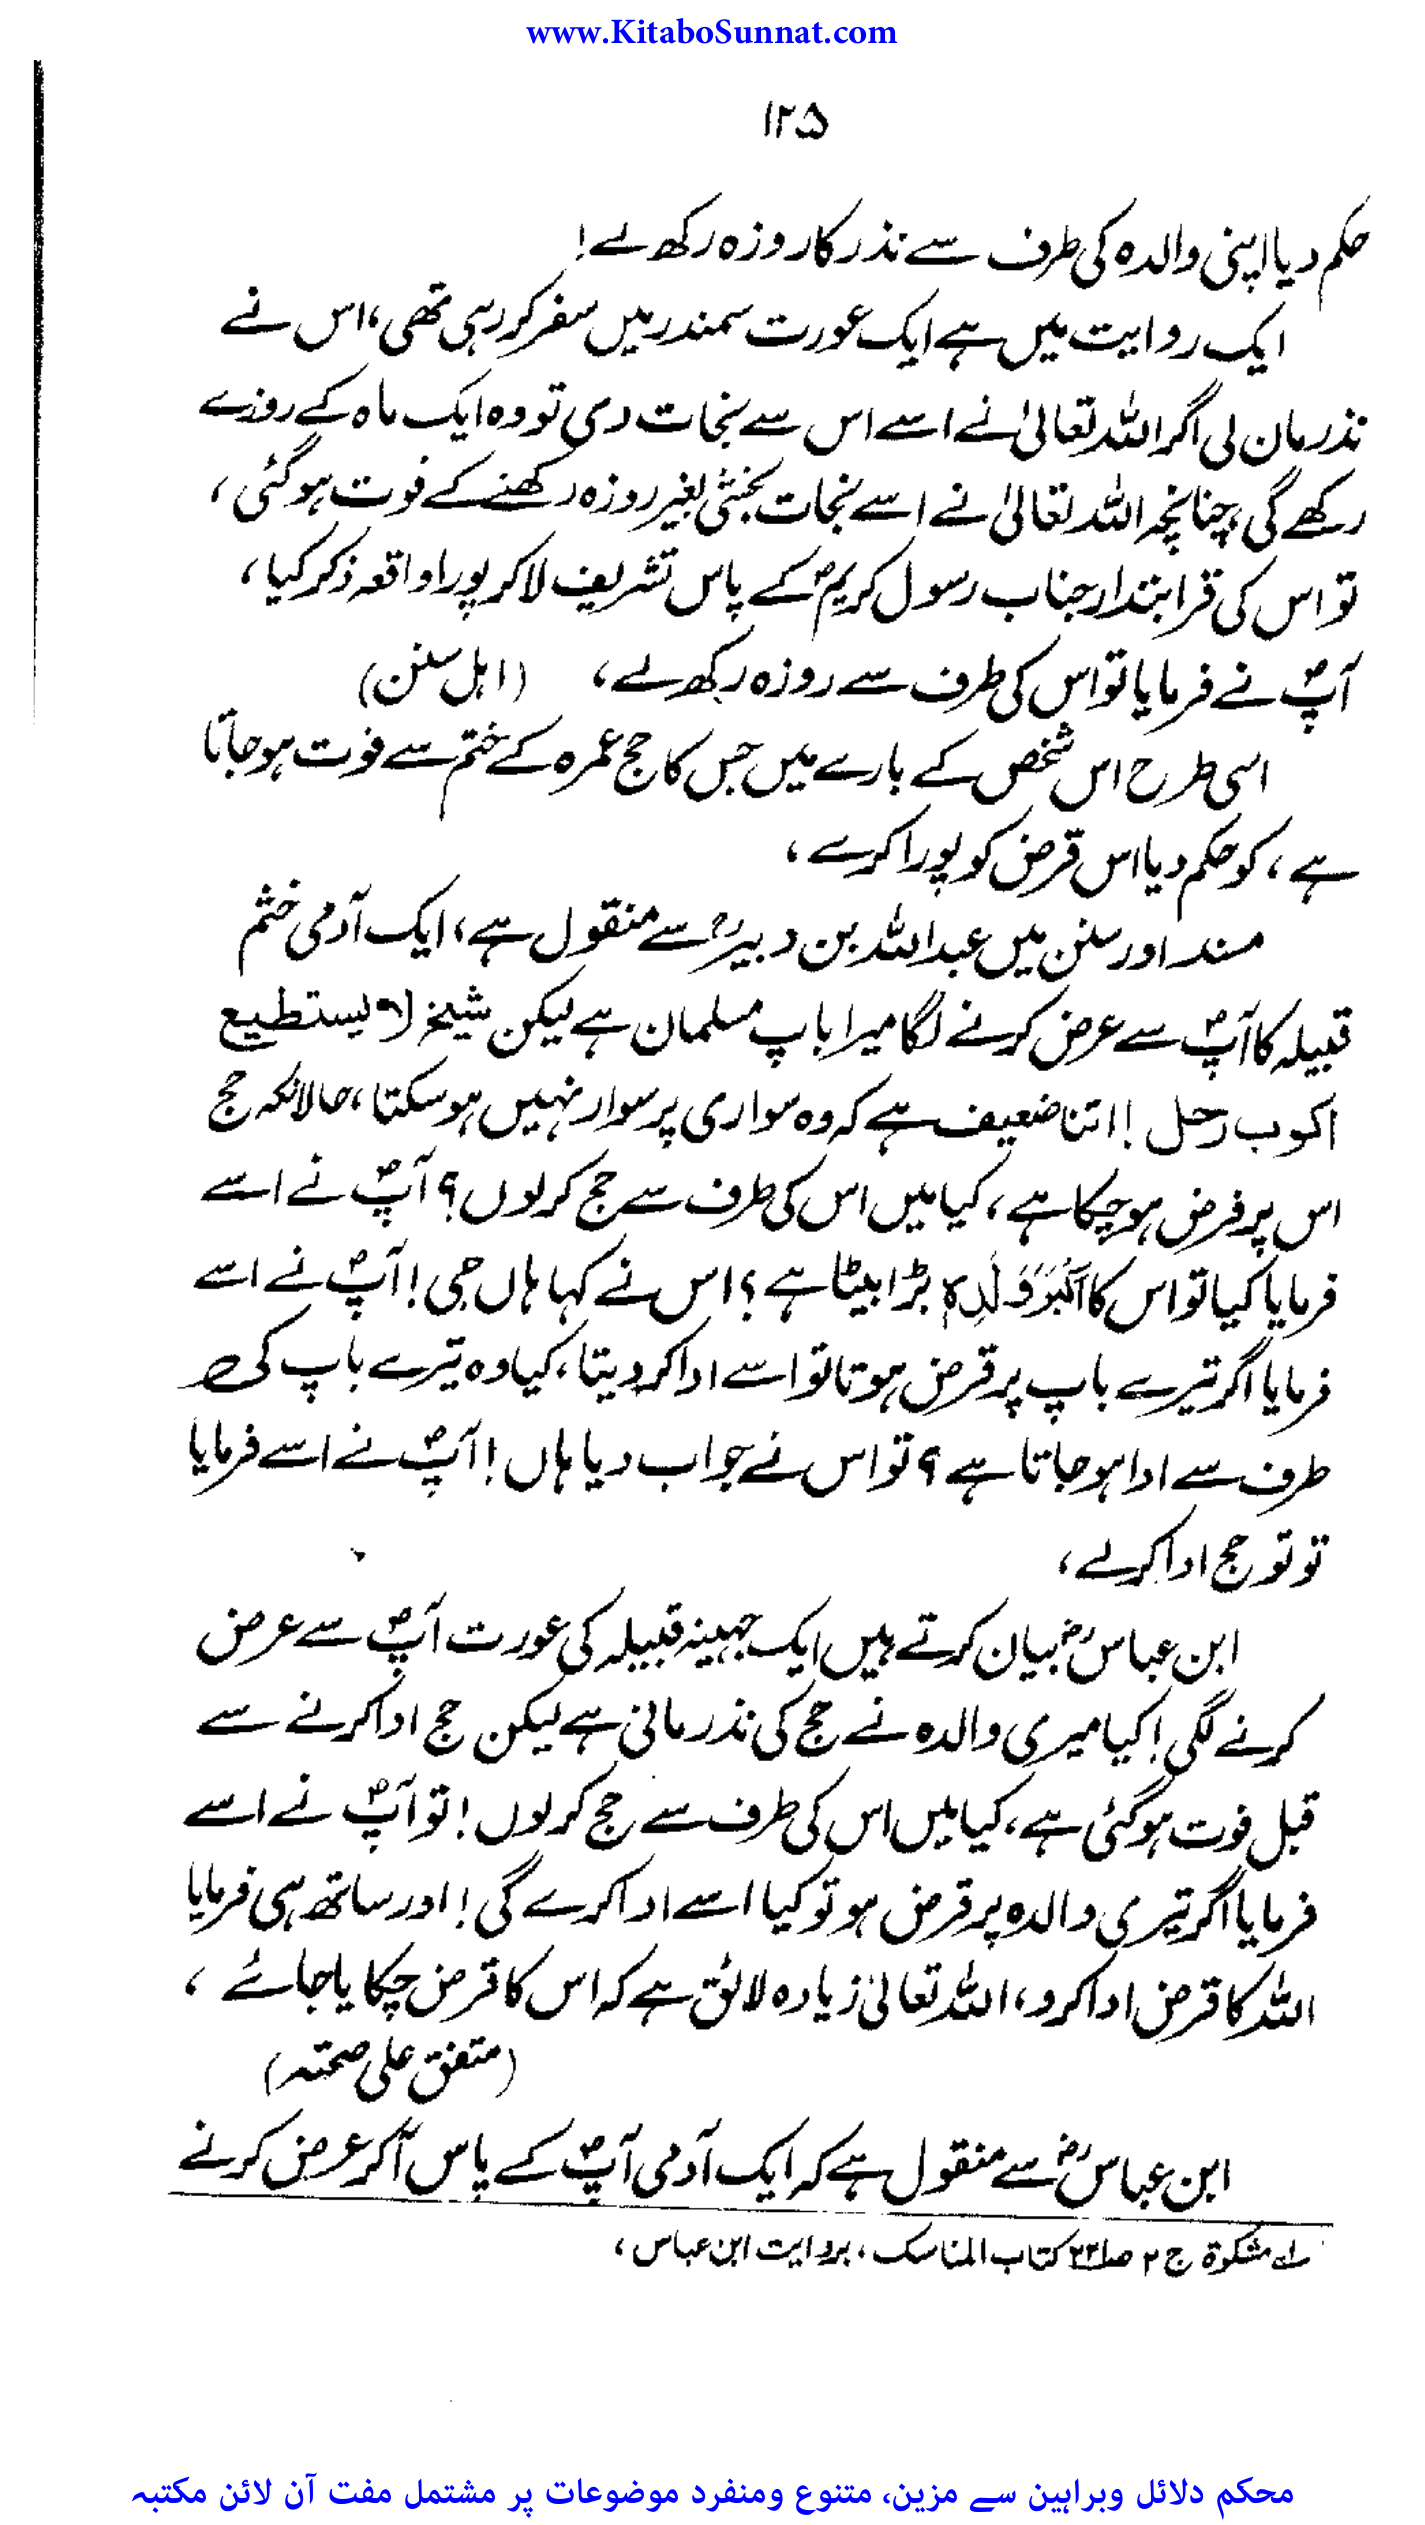 www.KitaboSunnat.com
۱۲۵
حکم دیا اپنی والدہ کی طرف سے نذر کا روزہ رکھ لے!
ایک روایت میں ہے ایک عورت سمندر میں سفر کر رہی تھی، اس نے
نذر مان لی اگر اللہ تعالیٰ نے اسے اس سے نجات دی تو وہ ایک ماہ کے روزے
رکھے گی، چنانچہ اللہ تعالیٰ نے اسے نجات بخشی بغیر روزہ رکھنے کے فوت ہوگئی،
تو اس کی قرابتدار جناب رسول کریمؐ کے پاس تشریف لا کر پورا واقعہ ذکر کیا،
آپؐ نے فرمایا تو اس کی طرف سے روزہ رکھ لے، (اہل سنن)
اسی طرح اس شخص کے بارے میں جس کا حج عمرہ کے ختم سے فوت ہو جاتا
ہے، کو حکم دیا اس قرض کو پورا کرے،
مسند اور سنن میں عبداللہ بن دبیرؓ سے منقول ہے، ایک آدمی خثم
قبیلہ کا آپؐ سے عرض کرنے لگا میرا باپ مسلمان ہے لیکن شیخ لا یستطیع
اکوب رحل! اتنا ضعیف ہے کہ وہ سواری پر سوار نہیں ہوسکتا، حالانکہ حج
اس پر فرض ہو چکا ہے، کیا میں اس کی طرف سے حج کر لوں؟ آپؐ نے اسے
فرمایا کیا تو اس کا اَکْبَرُ وَلَدِہٖ بڑا بیٹا ہے؟ اس نے کہا ہاں جی! آپؐ نے اسے
فرمایا اگر تیرے باپ پر قرض ہوتا تو اسے ادا کر دیتا، کیا وہ تیرے باپ کی
طرف سے ادا ہو جاتا ہے؟ تو اس نے جواب دیا ہاں! آپؐ نے اسے فرمایا
تو تو حج ادا کرلے،
ابن عباسؓ بیان کرتے ہیں ایک جہینہ قبیلہ کی عورت آپؐ سے عرض
کرنے لگی! کیا میری والدہ نے حج کی نذر مانی ہے لیکن حج ادا کرنے سے
قبل فوت ہوگئی ہے، کیا میں اس کی طرف سے حج کر لوں! تو آپؐ نے اسے
فرمایا اگر تیری والدہ پر قرض ہو تو کیا اسے ادا کرے گی! اور ساتھ ہی فرمایا
اللہ کا قرض ادا کرو، اللہ تعالیٰ زیادہ لائق ہے کہ اس کا قرض چکایا جائے،
(متفق علی صحتہ)
ابن عباسؓ سے منقول ہے کہ ایک آدمی آپؐ کے پاس آکر عرض کرنے
لے مشکوۃ ج ۲ کتاب المناسک، بروایت ابن عباس،
محکم دلائل وبراہین سے مزین، متنوع ومنفرد موضوعات پر مشتمل مفت آن لائن مکتبہ